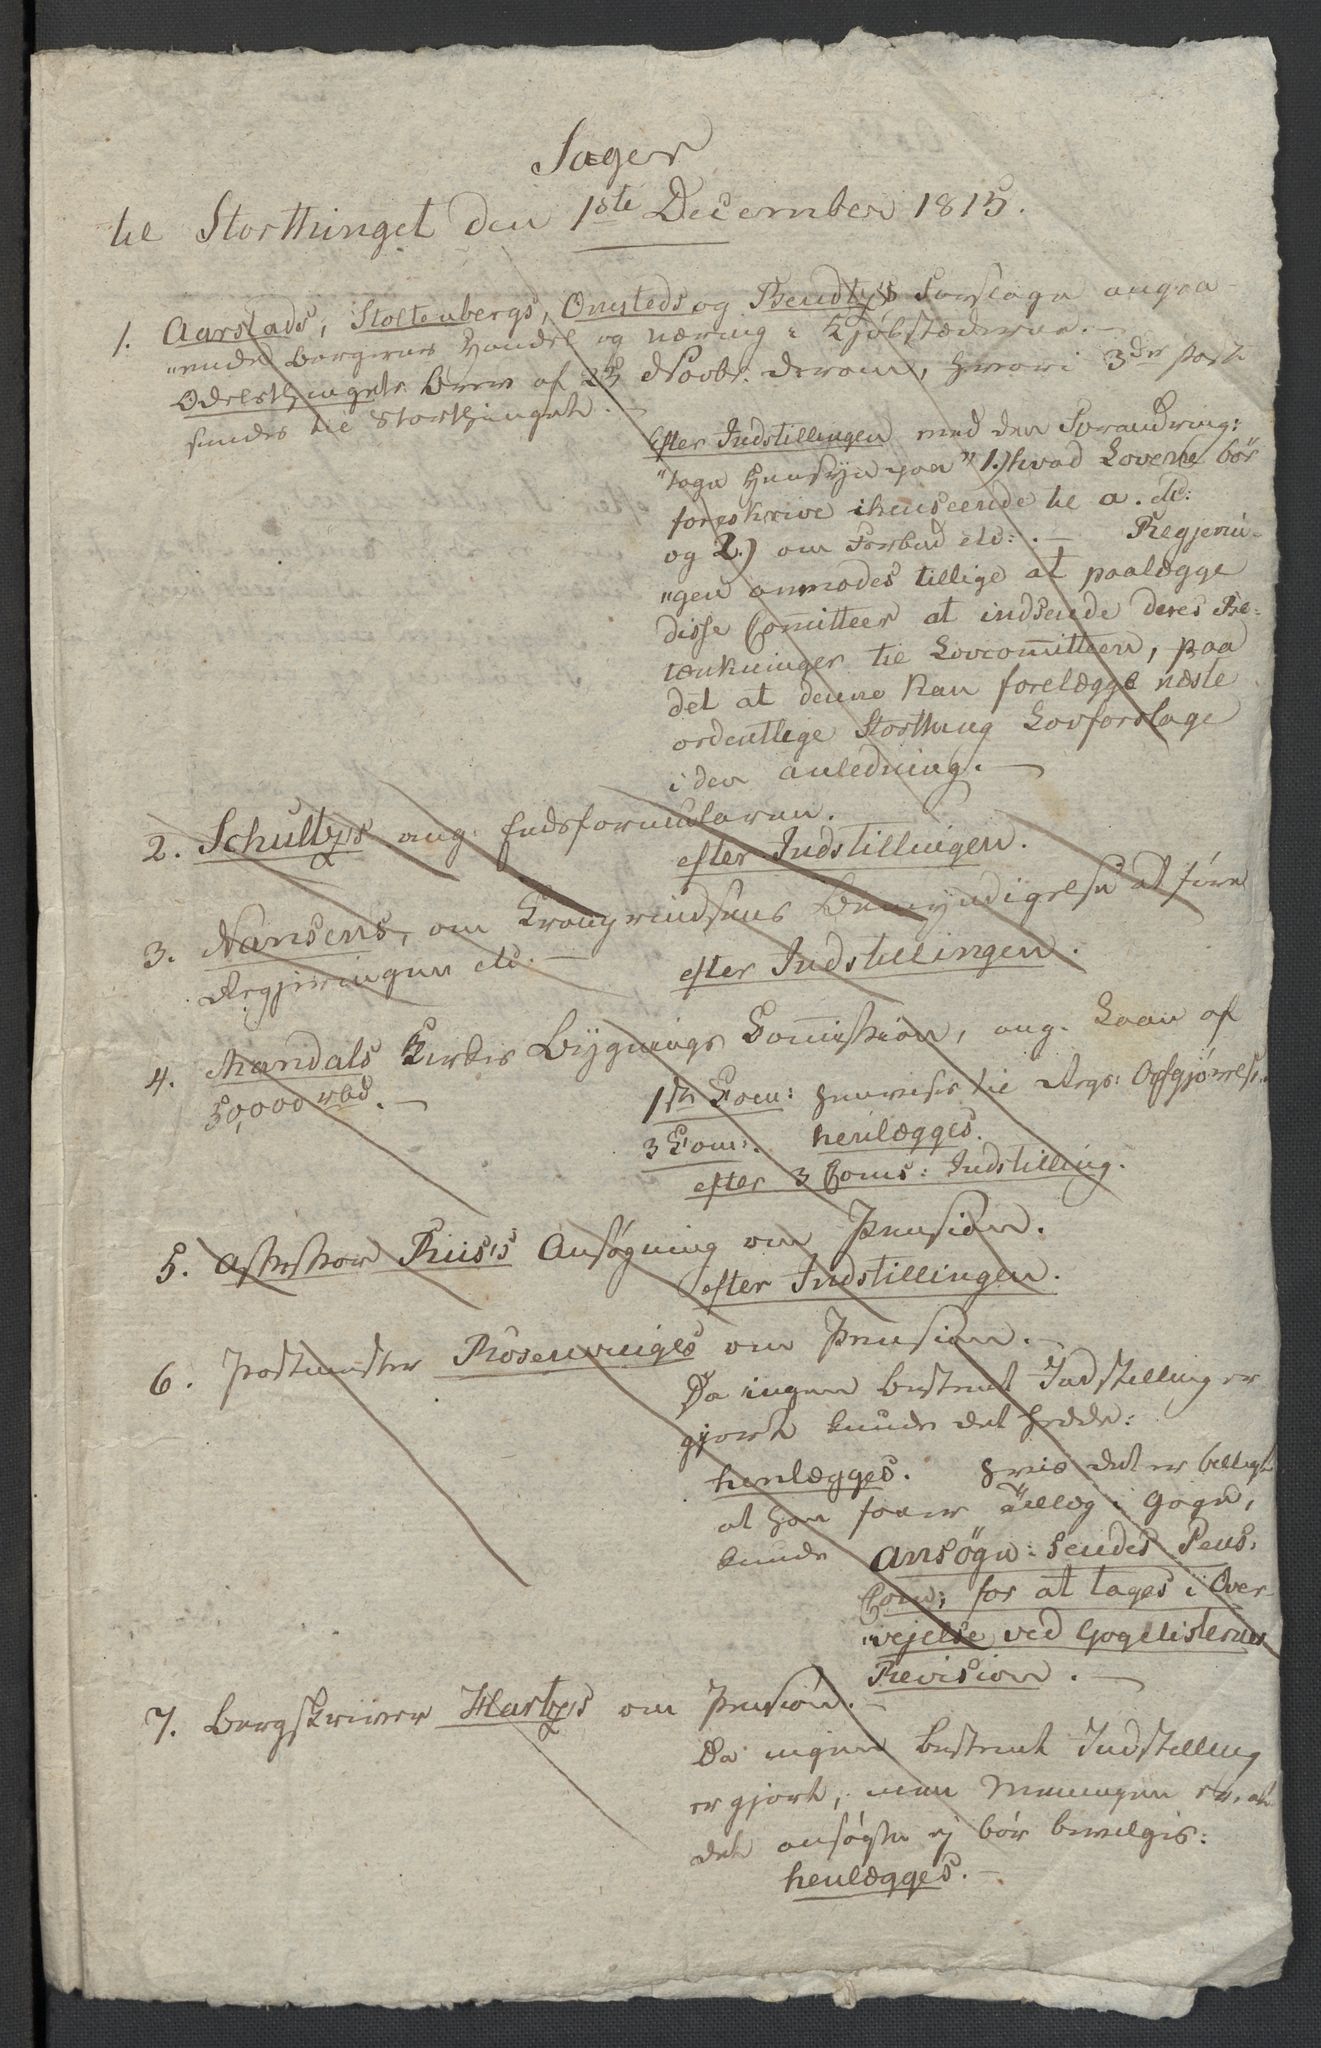 Sager
til Storthinget den 1ste December 1815.
1. Aarstads, Stoltenbergs, Omsteds og Bendtzs Forslage angaa-
"ende Borgernes Handel og Næring i Kjøbstæderne.—
Odelsthingets Brev af 23 Novbr. derom, hvori 3die Post
sendes til Storthinget.—
Efter Indstillingen med den Forandring:
"tage Hensyn paa" 1.) hvad Lovene bör
foreskrive ihenseende til a. etc:
og 2.) om Forbud etc: .— Regjerin-
"gen anmodes tillige at paalægge
disse Comitteer at indsende deres Be-
tænkninger til Lovcomitteen, paa
det at denne kan forelægge næste
ordentlige Storthing Lovforslage
i den anledning.—
2. Schultzes ang. Eedsformularen.
efter Indstillingen.
3. Nansens, om Kronprindsens Bemyndigelse at före
Regjeringen etc.—
efter Indstillingen.
4. Mandals Kirkes Bygnings Commission, ang. Laan af
50,000 rbd.—
1ste Com: henvises til Regs: Opgjörelse.
3 Com:. henlægges.
efter 3 Coms: Indstilling.
5. Assessor Riis's Ansøgning om Pension.
efter Indstillingen.
6. Postmester Rosenvinges om Pension.—
Da ingen bestemt Indstilling er
gjort kunde det hedde:
henlægges. Hvis det er billigt
at han faaer Tillæg i Gage,
kunde Ansögn: sendes Pens.
Com: for at tages i Over-
"vejelse ved Gagelisternes
Revision .—
7. Bergskriver Hartzes om Pension.—
Da ingen bestemt Indstilling
er gjort, men Meningen er, at
det ansøgte ej bör bevilges:
henlægges.—